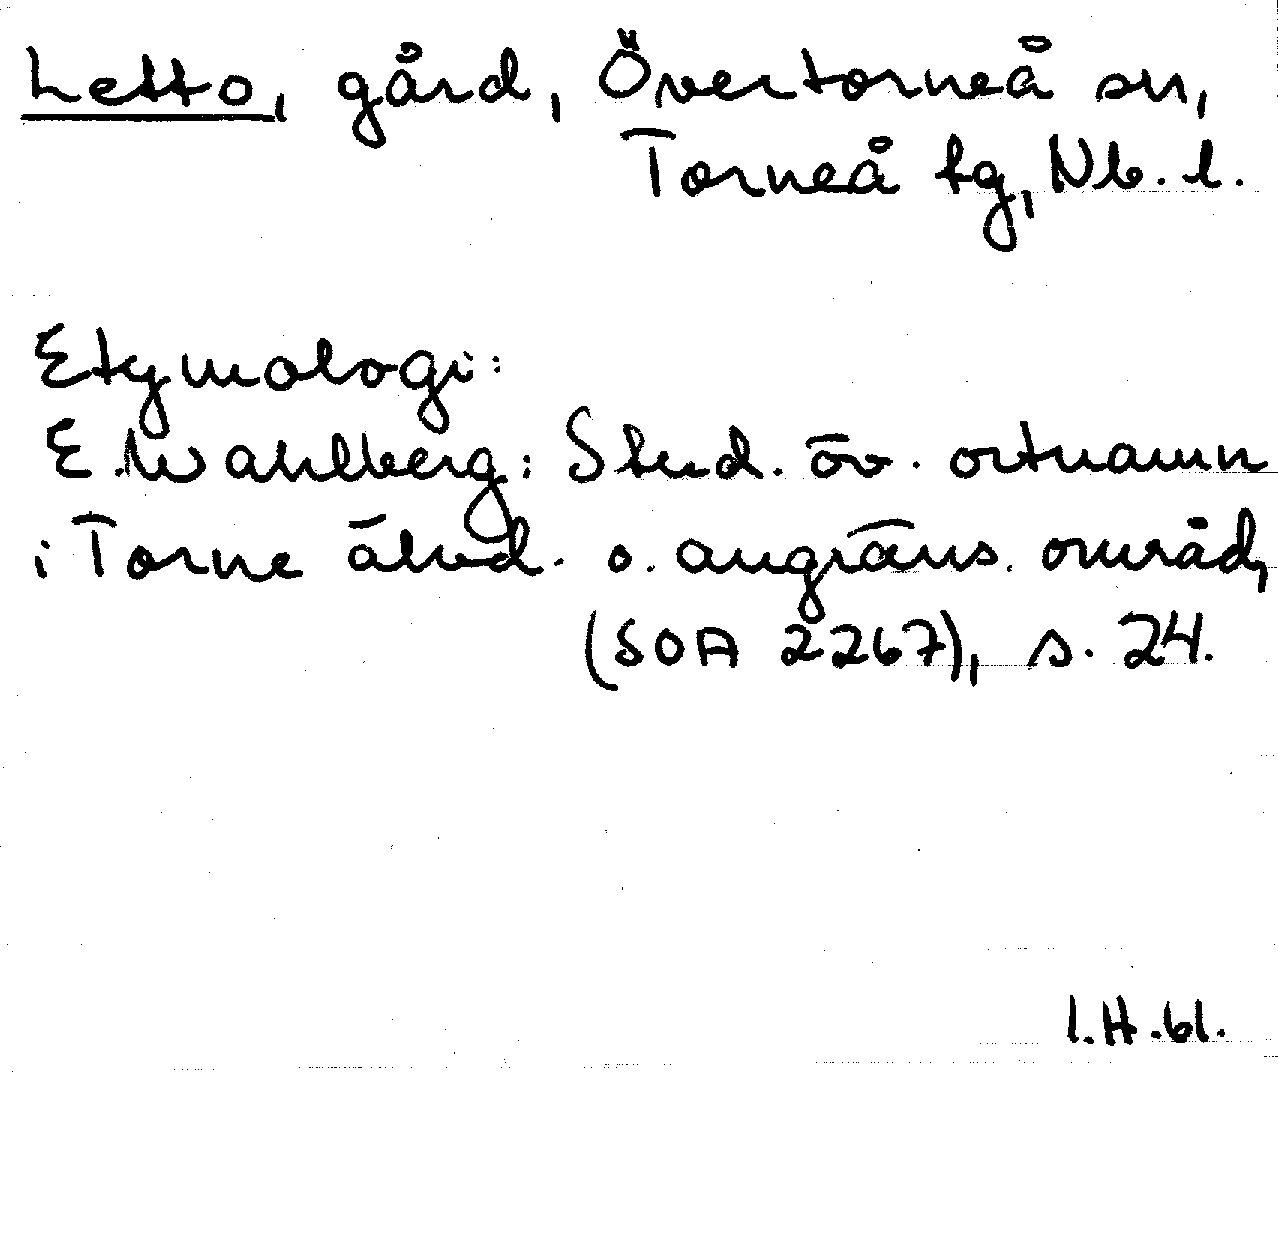 Letto, gård, Övertorneå sn,
Torneå tg, Nb. l.
Etymologi:
E. Wahlberg: Stud. öv. ortnamn
i Torne älvd. o. angräns. områd,
(SOA 2267), s. 24.
I.H.61.